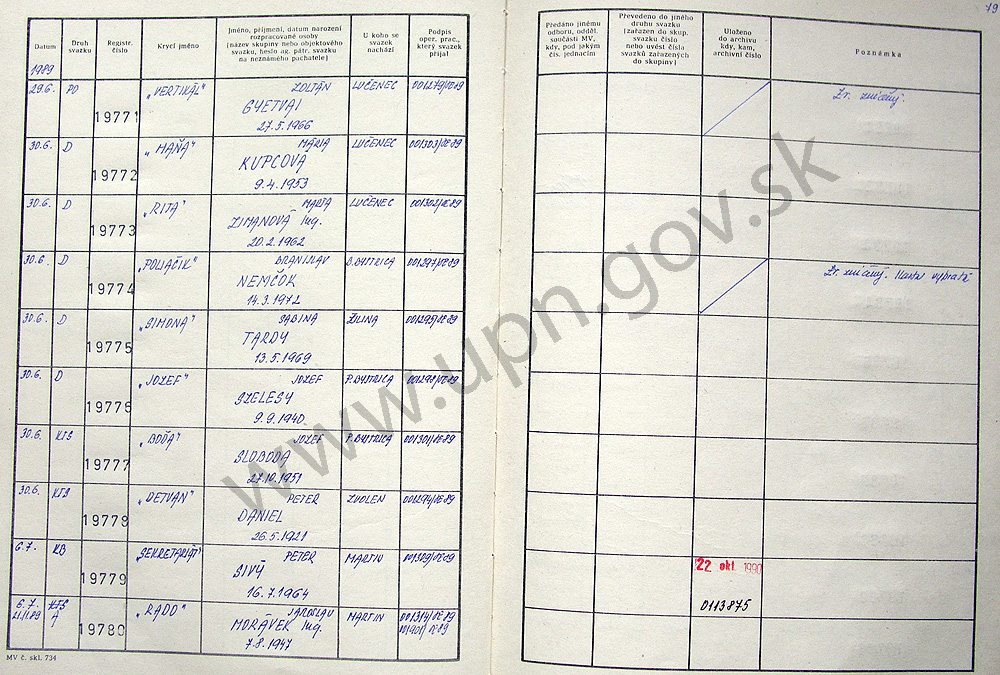 79
Datum
Druh svazku
Registr. číslo
Krycí jméno
Jméno, příjmení, datum narození
rozpracované osoby
[název skupiny nebo objektového
svazku, heslo ag. pátr. svazku
na neznámého pachatele]
U koho se
svazek
nachází
Podpis
oper. prac.,
který svazek
přijal
Předáno jinému
odboru, odděl.
součásti MV,
kdy, pod jakým
čís. jednacím
Převedeno do jiného
druhu svazku
[zařazen do skup.
svazku číslo
nebo uvést čísla
svazků zařazených
do skupiny]
Uloženo
do archivu
kdy, kam,
archivní číslo
Poznámka
1989
29.6. PO 19771 „VERTIKÁL" ZOLTÁN LUČENEC 001279/OE-89 Zr. zničený.
GYETVAI
27.5.1966
30.6. D 19772 „MAŇA" MÁRIA LUČENEC 001303/OE-89
KUPCOVÁ
9.4.1953
30.6. D 19773 „RITA" MARTA LUČENEC 001302/OE-89
ZIMANOVÁ Ing.
20.2.1962
30.6. D 19774 „POLIAČIK" BRANISLAV B.BYSTRICA 001297/OE-89 Zr. zničený.
NEMČOK
14.3.1972
30.6. D 19775 „SIMONA" SABINA ŽILINA 001295/OE-89
TARDY
13.5.1969
30.6. D 19776 „JOZEF" JOZEF P.BYSTRICA 001298/OE-89
SZELESY
9.9.1940
30.6. KTS 19777 „BOĎA" JOZEF P.BYSTRICA 001301/OE-89
SLOBODA
27.10.1951
30.6. KTS 19778 „DETVAN" PETER ZVOLEN 001294/OE-89
DANIEL
26.5.1921
6.7. KB 19779 „SEKRETARIÁT" PETER MARTIN 001309/OE-89 22 okt. 1990
SIVÝ
16.7.1964
0113875
6.7. KTS 19780 „RADO" JAROSLAV MARTIN 001314/OE-89
A MORÁVEK Ing.
7.8.1947
MV č. skl. 734
www.upn.gov.sk